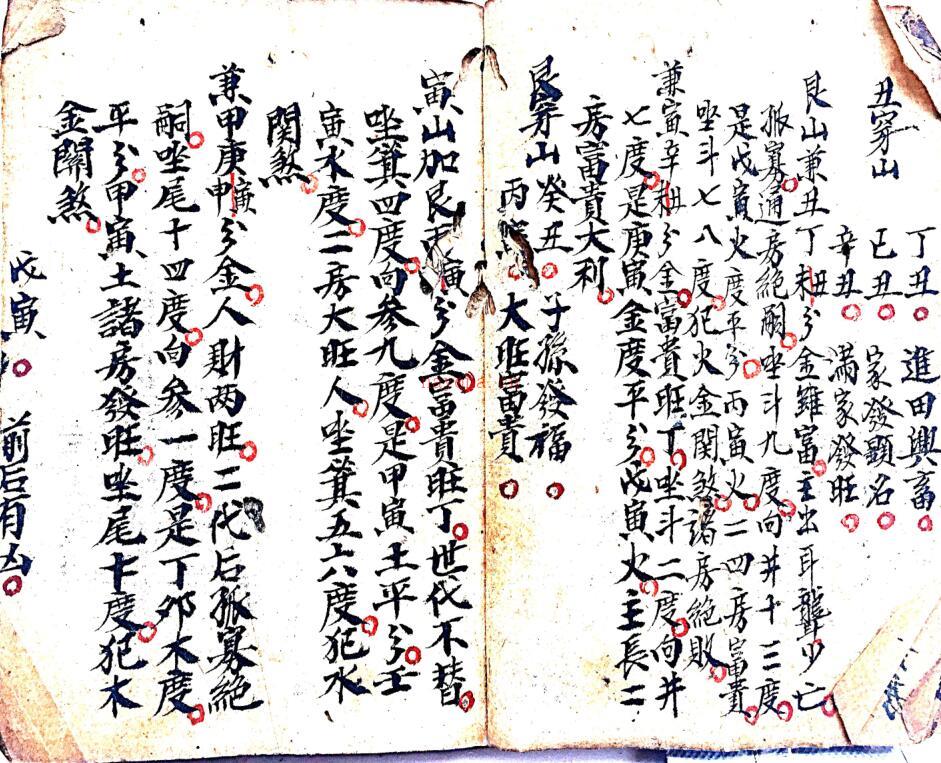 丑穿山
丁丑 進田興畜
己丑 家發顯名
辛丑 滿家發旺
艮山兼丑丁未分金雖富主出耳聾少亡
孤寡通房絕嗣坐斗九度向井十三度
是戊寅火度平分丙寅火二四房富貴
坐斗七八度犯火金関煞諸房絕敗
兼寅辛丑分金富貴旺丁坐斗二度向井
七度是庚寅金度平分戊寅火主長二
房富貴大利
艮穿山 癸丑 子孫發福
丙 大旺富貴
寅山加艮丙寅分金富貴旺丁世代不替
坐箕四度向參九度是甲寅土平分壬
寅水度二房大旺人坐箕五六度犯水
関煞
兼甲庚寅分金人財两旺二代后孤寡絕
嗣坐尾十四度向參一度是丁卯木度
平分甲寅土諸房發旺坐尾十度犯木
金關煞
戊寅 前后有凶